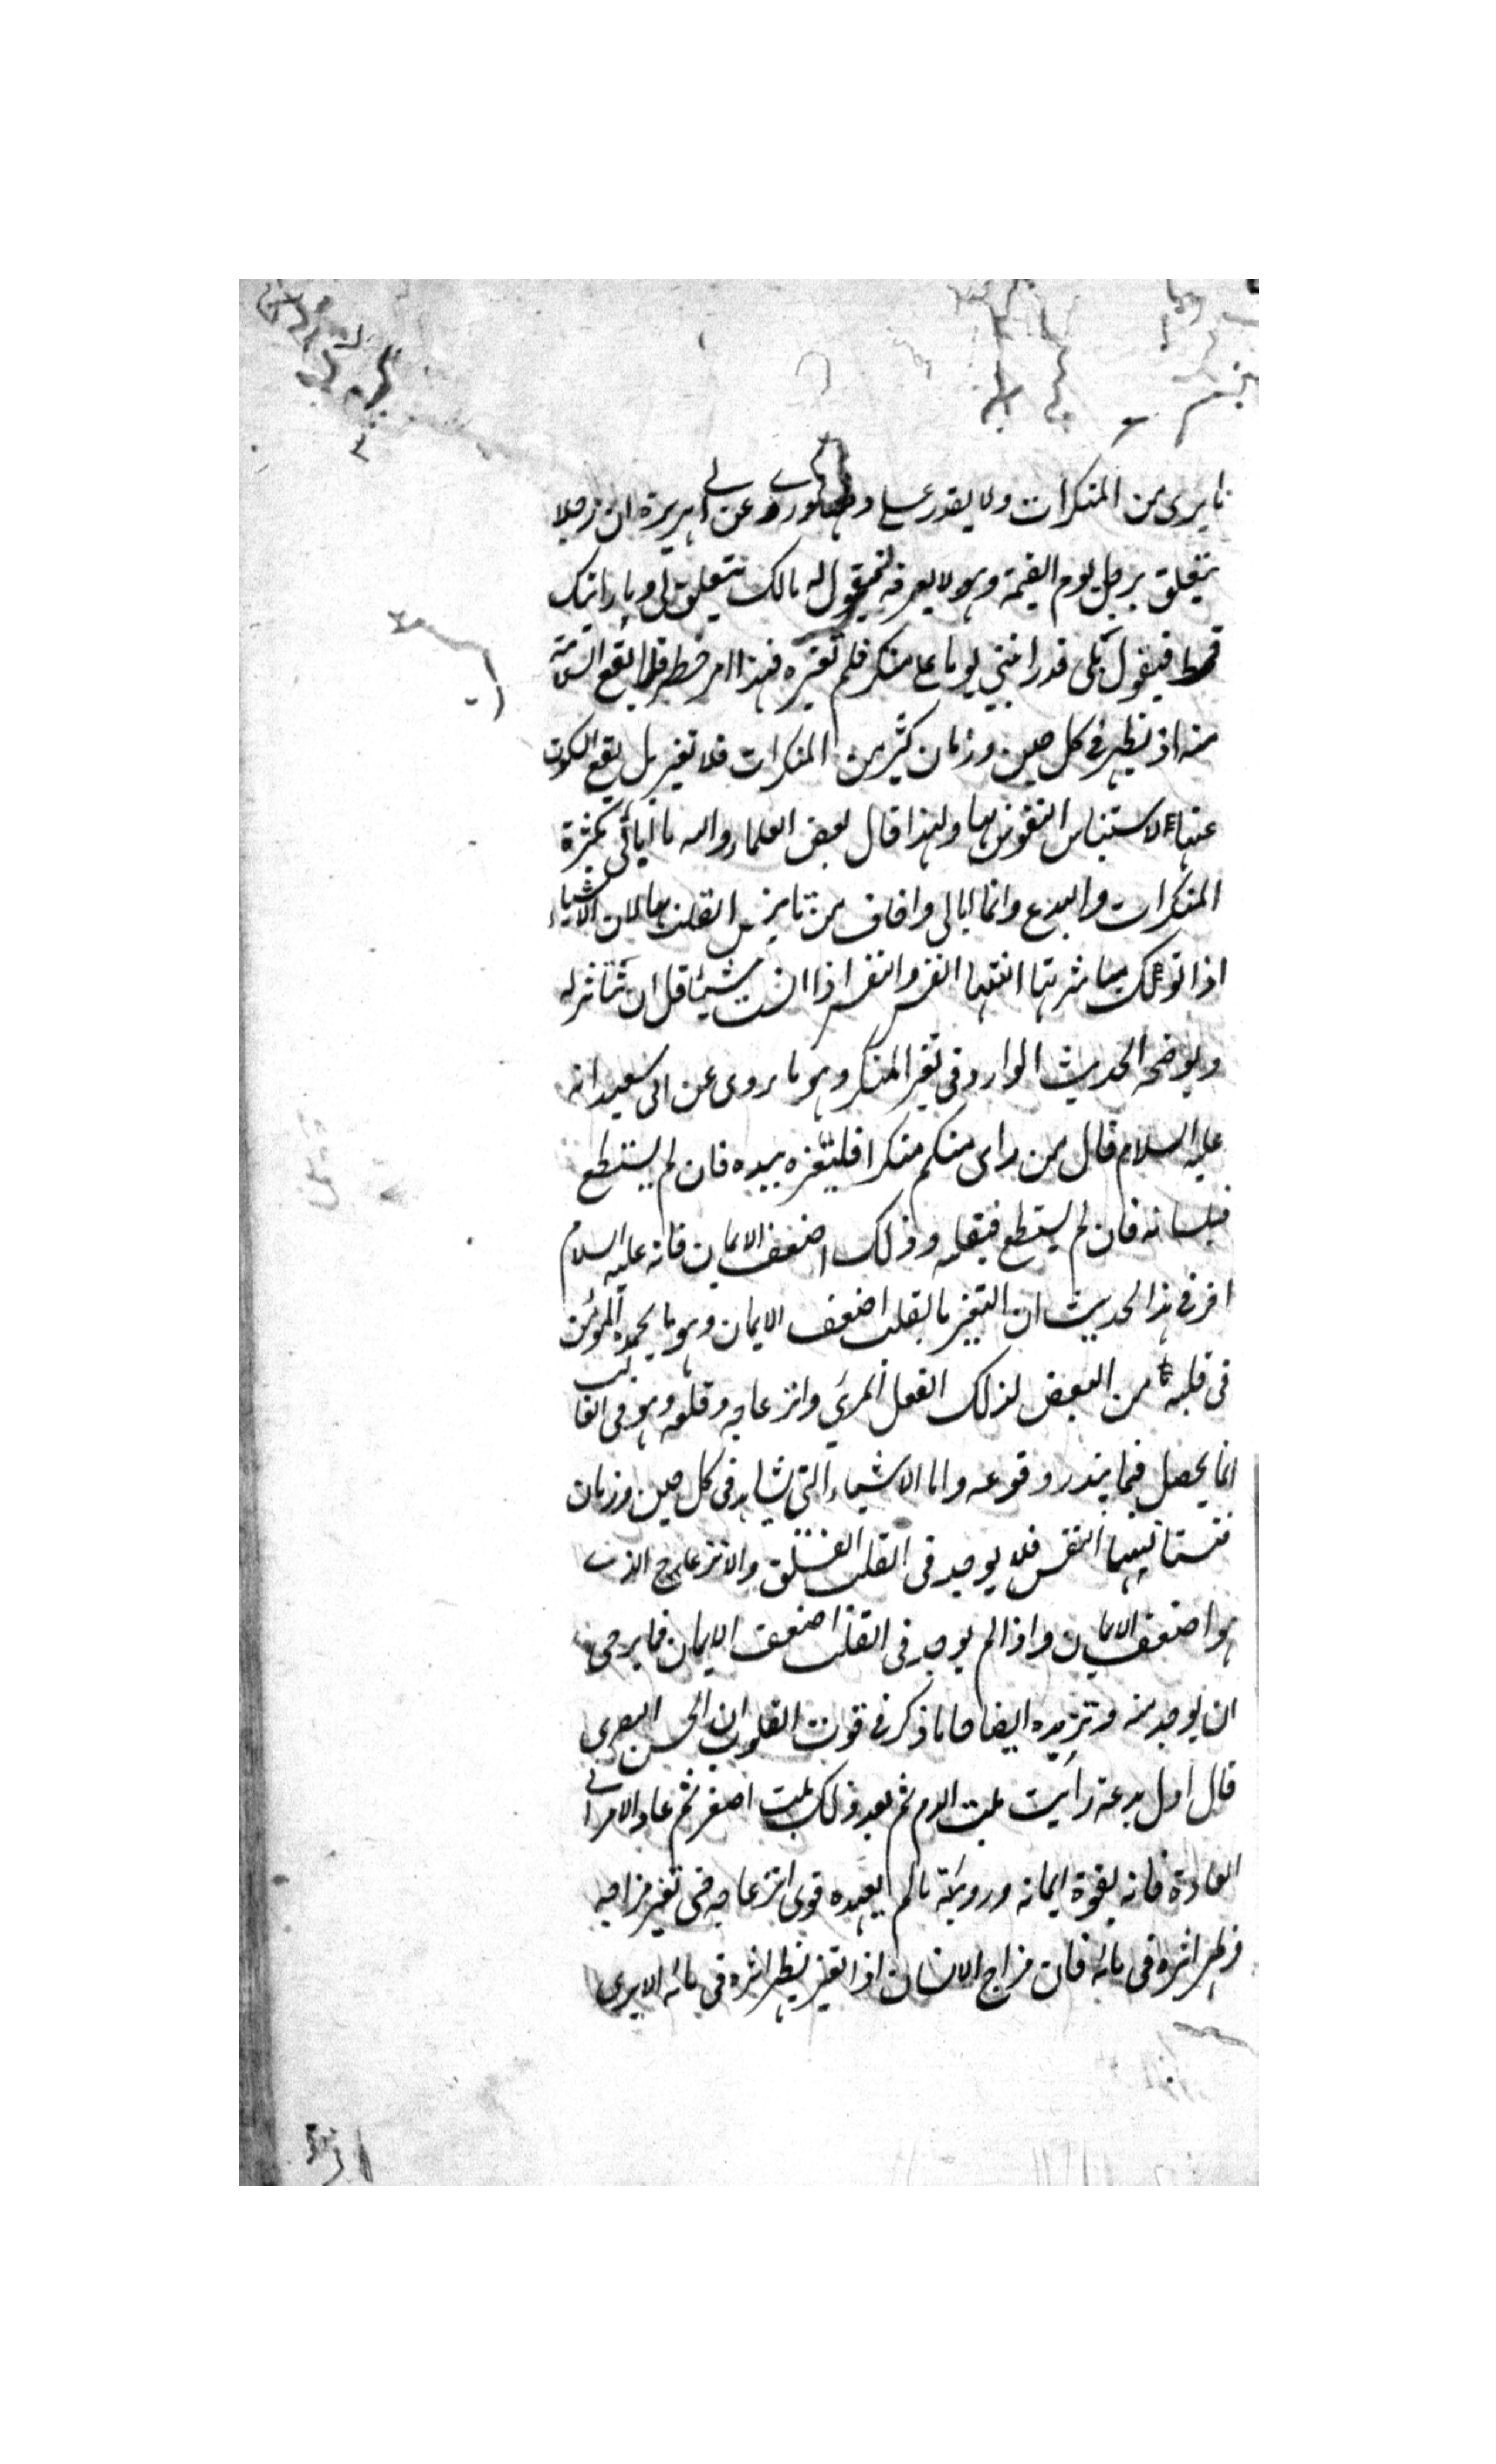 ما يرى من المنكرات ولا يقدر على دفعها وروى عن ابي هريرة ان رجلا
يتعلق برجل يوم القيمة وهو لا يعرفه فيقول له مالك تتعلق بي وما رايتك
قط فيقول بلى قد رايتني يوما على منكر فلم تغيره فهذا امر خطر قلما يقع السلامة
منه اذ يظهر في كل حين وزمان كثير من المنكرات فلا تغير بل يقع السكوت
عنها لاستيناس النفوس بها ولهذا قال بعض العلماء والله ما ابالي بكثرة
المنكرات والبدع وانما ابالي واخاف من تانيس القلب بها لان الاشياء
اذا توالت مباشرتها انستها النفس والنفس اذا انست شيئا قل ان تتاثر له
ويوضحه الحديث الوارد في تغير المنكر وهو ما روى عن ابي سعيد انه
عليه السلام قال من راى منكم منكرا فليغيره بيده فان لم يستطع
فبلسانه فان لم يستطع فبقلبه وذلك اضعف الايمان فانه عليه السلام
اخبر في هذا الحديث ان التغير بالقلب اضعف الايمان وهو ما يجده المؤمن
في قلبه من البغض لذلك الفعل المرئي وانزعاجه وقلقه وهو في الغالب
انما يحصل فيما يندر وقوعه واما الاشياء التي تشاهد في كل حين وزمان
فتستانسها النفس فلا يوجد في القلب القلق والانزعاج الذي
هو اضعف الايمان واذا لم يوجد في القلب اضعف الايمان فما يرجى
ان يوجد منه وتزيده ايضاحا ما ذكر في قوت القلوب ان الحسن البصري
قال اول بدعة رايت بلت الدم ثم بعد ذلك بلت اصفر ثم عاد الامر الى
العادة فانه لقوة ايمانه ورويته ما لم يعهده قوى انزعاجه حتى تغير مزاجه
فظهر اثره في مائه فان مزاج الانسان اذا تغير يظهر اثره في مائه الا يرى